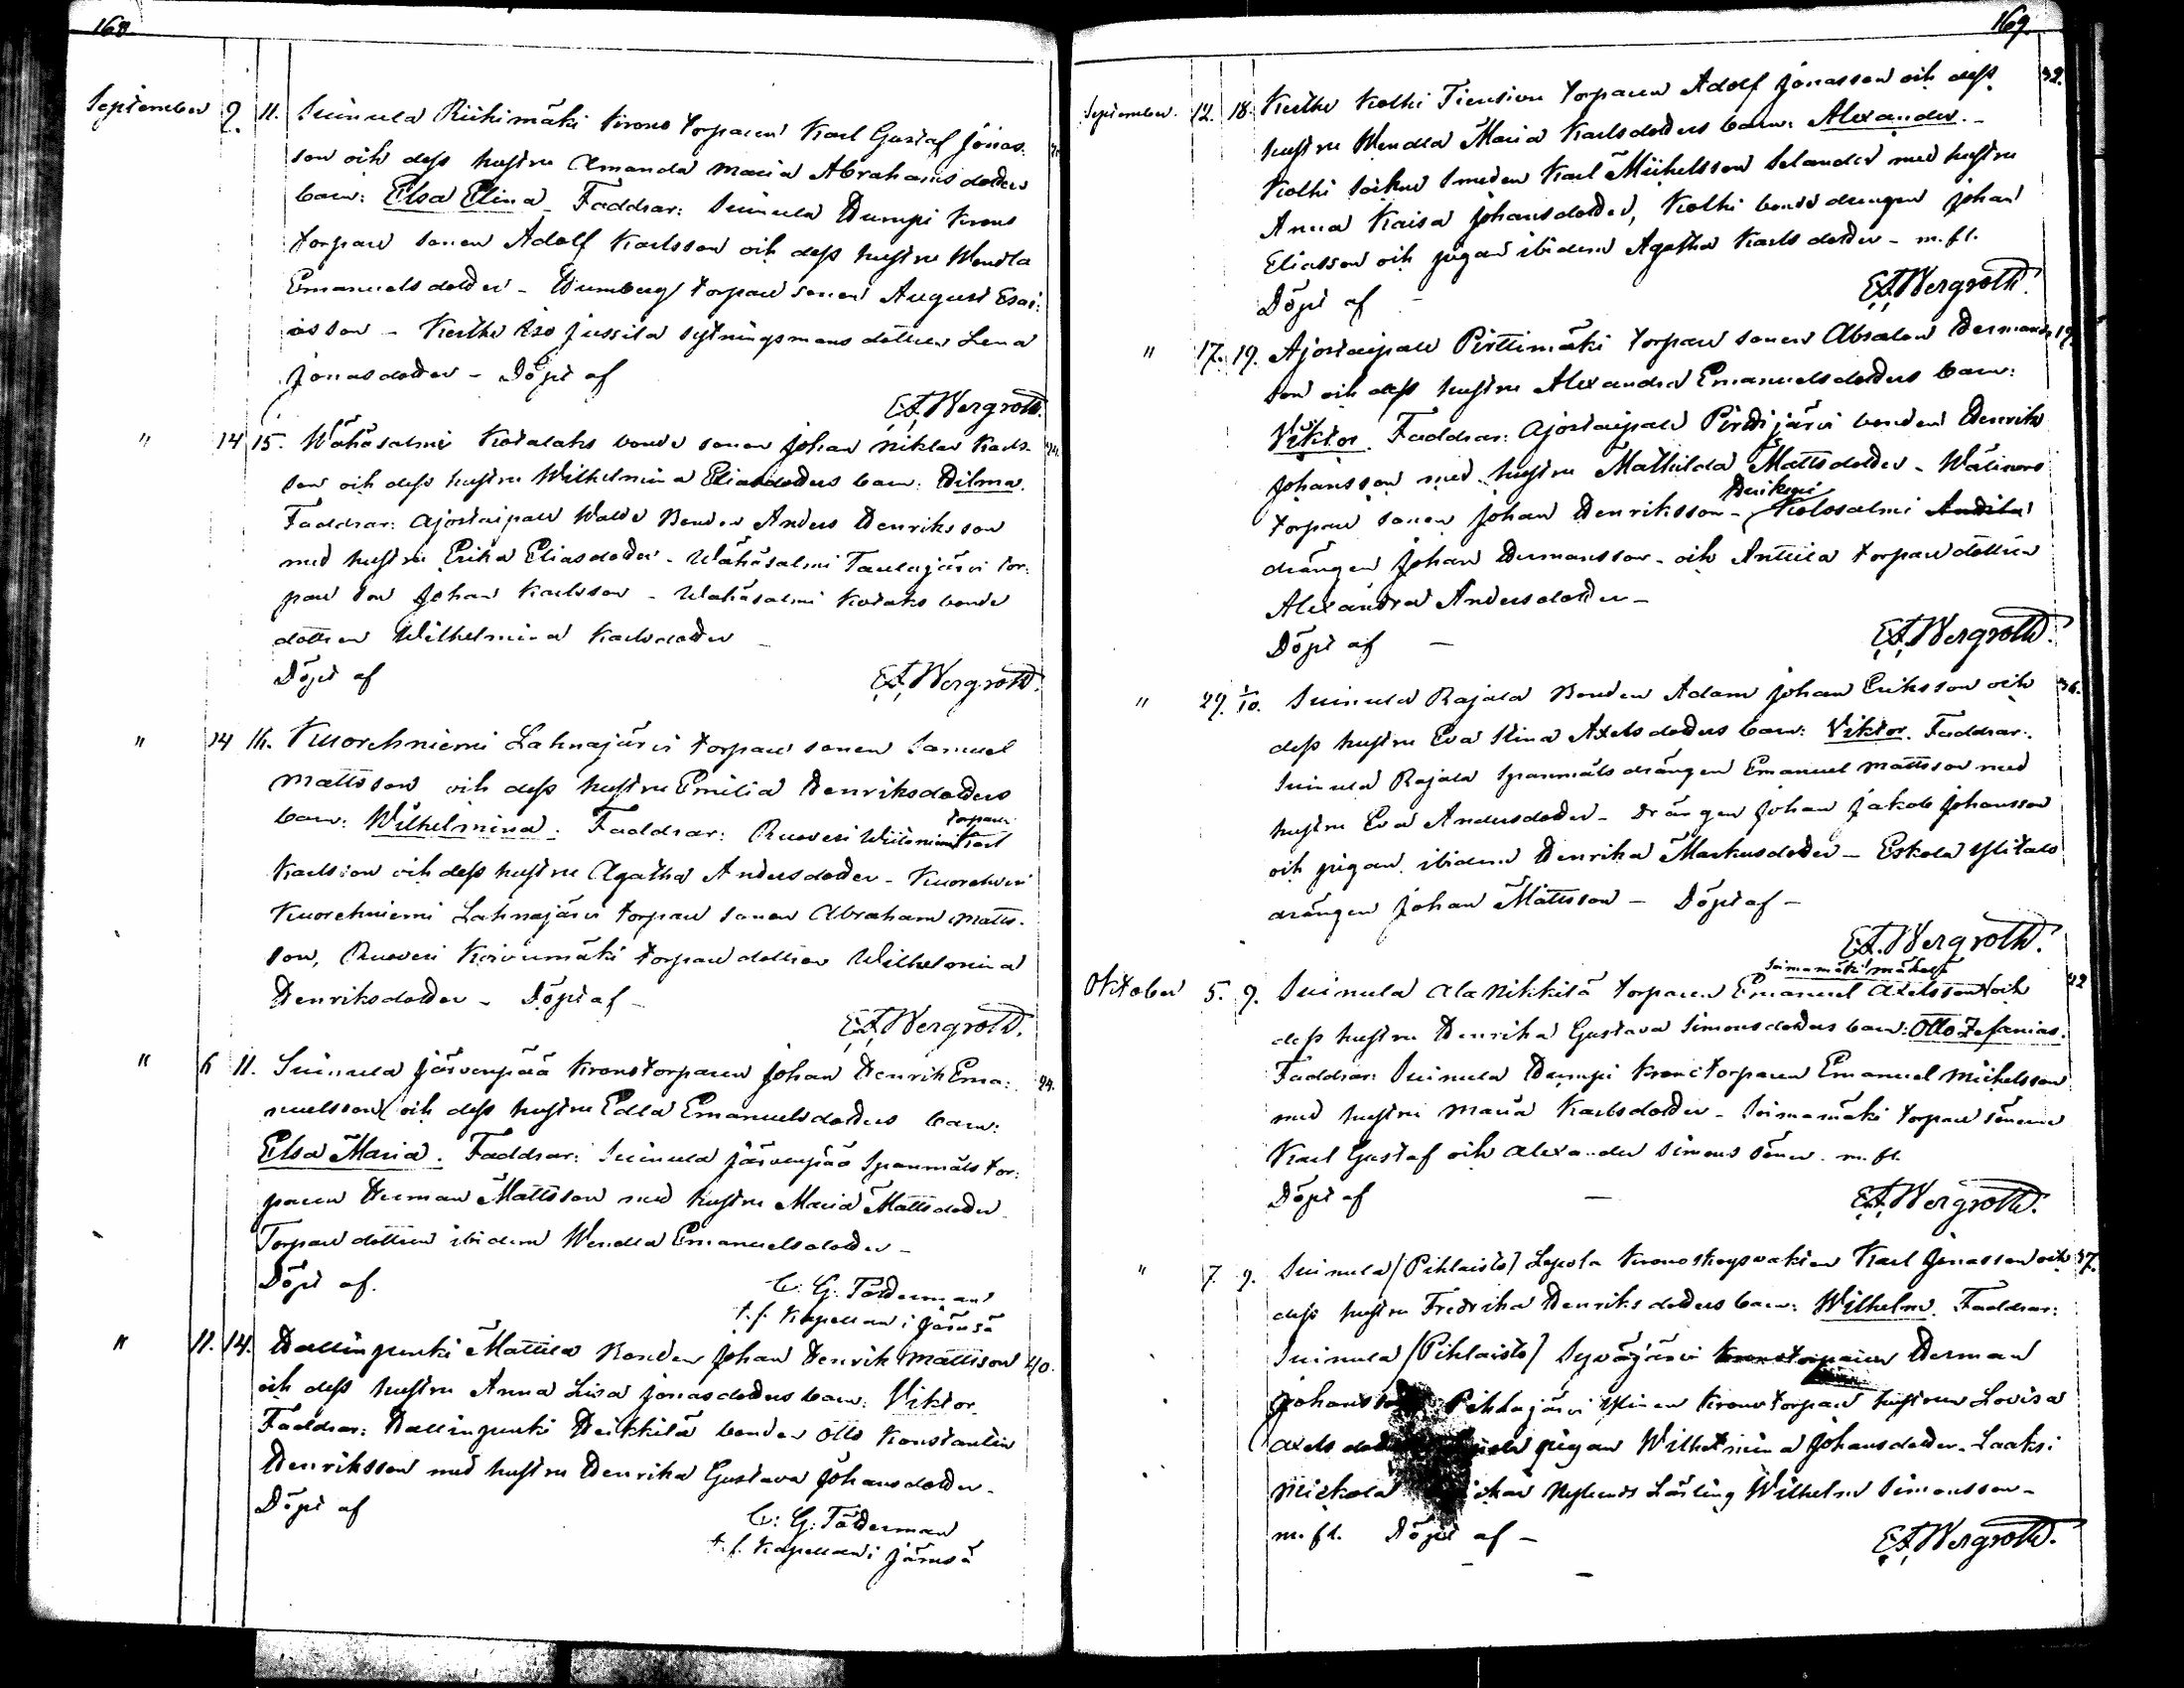 168.
September 9. 11. Suinula Riihimäki Krono torparen Karl Gustaf Jonas-
son och dess hustru Amanda Maria Abrahamsdotters
barn: Elsa Elina. Faddrar: Suinula Humpi Krono
torpare sonen Adolf Karlsson och dess hustru Wendla
Emanuelsdotter - Humberg torpare sonen August Esai-
asson - Keuthe Iso Jussila sytningsmans dottren Lena
Jonasdotter - Döpt af
E.A. Wergroth.
" 14 15. Wähäsalmi Kotalaks bonde sonen Johan Niklas Karls-
son och dess hustru Wilhelmina Eliasdotters barn: Hilma.
Faddrar: Ajostaipale Walde Bonden Anders Henriksson
med hustru Erika Eliasdotter - Wähäsalmi Taulajärvi tor-
pare son Johan Karlsson - Wähäsalmi Kotaks bonde
dottren Wilhelmina Karlsdotter
Döpt af E.A. Wergroth.
" 14 16. Kuorehniemi Lahnajärvi torpare sonen Samuel
Mattsson och dess hustru Emilia Henriksdotters
torparen
barn: Wilhelmina. Faddrar: Ruoveri Karl
Karlsson och dess hustru Agatha Andersdotter - Kuorehvesi
Kuorehniemi Lahnajärvi torpare sonen Abraham Matts-
son, Ruovesi Koivumäki torpare dottren Wilhelmina
Henriksdotter - Döpt af -
E.A. Wergroth.
" 6 11. Suinula Järvenpää Kronotorparen Johan Henrik Ema- 24.
nuelsson och dess hustru Edla Emanuelsdotters barn:
Elsa Maria. Faddrar: Suinula Järvenpää Spanmåls tor-
paren Herman Mattsson med hustru Maria Mattsdotter
Torpare dottren ibidem Wendla Emanuelsdotter -
Döpt af. C: G: Tötterman
t. f. Kapellan i Jämsä
" 11. 14. Hallinpenki Mattila Bonden Johan Henrik Mattsson 40.
och dess hustru Anna Lisa Jonasdotters barn: Viktor.
Faddrar: Hallinpenki Heikkilä bonden Otto Konstantin
Henriksson med hustru Henrika Gustava Johansdotter -
Döpt af C: G: Tötterman
t. f. Kapellan i Jämsä
169.
September. 12. 18. Keuthe Kolhi Tiensivu torparen Adolf Jonasson och dess 32.
hustru Wendla Maria Karlsdotters barn: Alexander. -
Kolhi socken smeden Karl Mikkelsson Selander med hustru
Anna Kaisa Johansdotter, Kolhi bonde drengen Johan
Eliasson och pigan ibidem Agatha Karlsdotter - m.fl.
Döpt af - E.A. Wergroth.
" 17. 19. Ajostaipale Pirttimäki torpare sonen Absalon Hermans- 19.
son och dess hustru Alexandra Emanuelsdotters barn:
Viktor. Faddrar: Ajostaipale Pirttijärvi bonden Henrik
Johansson med hustru Mathilda Mattsdotter -
torpare sonen Johan Henriksson - Kolosalmi
drängen Johan Hermansson - och Anttila torpare dottren
Alexandra Andersdotter -
Döpt af - E.A. Wergroth.
" 29. 1/10. Suinula Rajala Bonden Adam Johan Eriksson och 36.
dess hustru Eva Stina Axelsdotters barn: Viktor. Faddrar:
Suinula Rajala Spanmåls drängen Emanuel Mattsson med
hustru Eva Andersdotter - drängen Johan Jakob Johansson
och pigan ibidem Henrika Markusdotter - Eskola Ylitalo
drängen Johan Mattsson - Döpt af -
E.A. Wergroth.
Soimamäki mäkelä
Oktober 5. 9. Suinula Ala Nikkilä torparen Emanuel Axelsson och 22
dess hustru Henrika Gustava Simonsdotters barn: Otto Zefanias.
Faddrar: Suinula Humpi Kronotorparen Emanuel Michelsson
med hustru Maria Karlsdotter - Soimamäki torpare sönerne
Karl Gustaf och Alexander Simons söner. m. fl.
Döpt af - E.A. Wergroth.
" 7. 9. Suinula (Pihlaisto) Lepola Kronoskogsvakten Karl Jonasson och 37.
dess hustru Fredrika Henriksdotters barn: Wilhelm. Faddrar:
Suinula (Pihlaisto) Syväjärvi Kronotorparen Herman
Johansson Pihlajärvi Ylinen Kronotorpare hustrun Lovisa
Axels pigan Wilhelmina Johansdotter. Laaksi
Mickola Nylunds Lärling Wilhelm Simonsson -
m. fl. Döpt af - E.A. Wergroth.